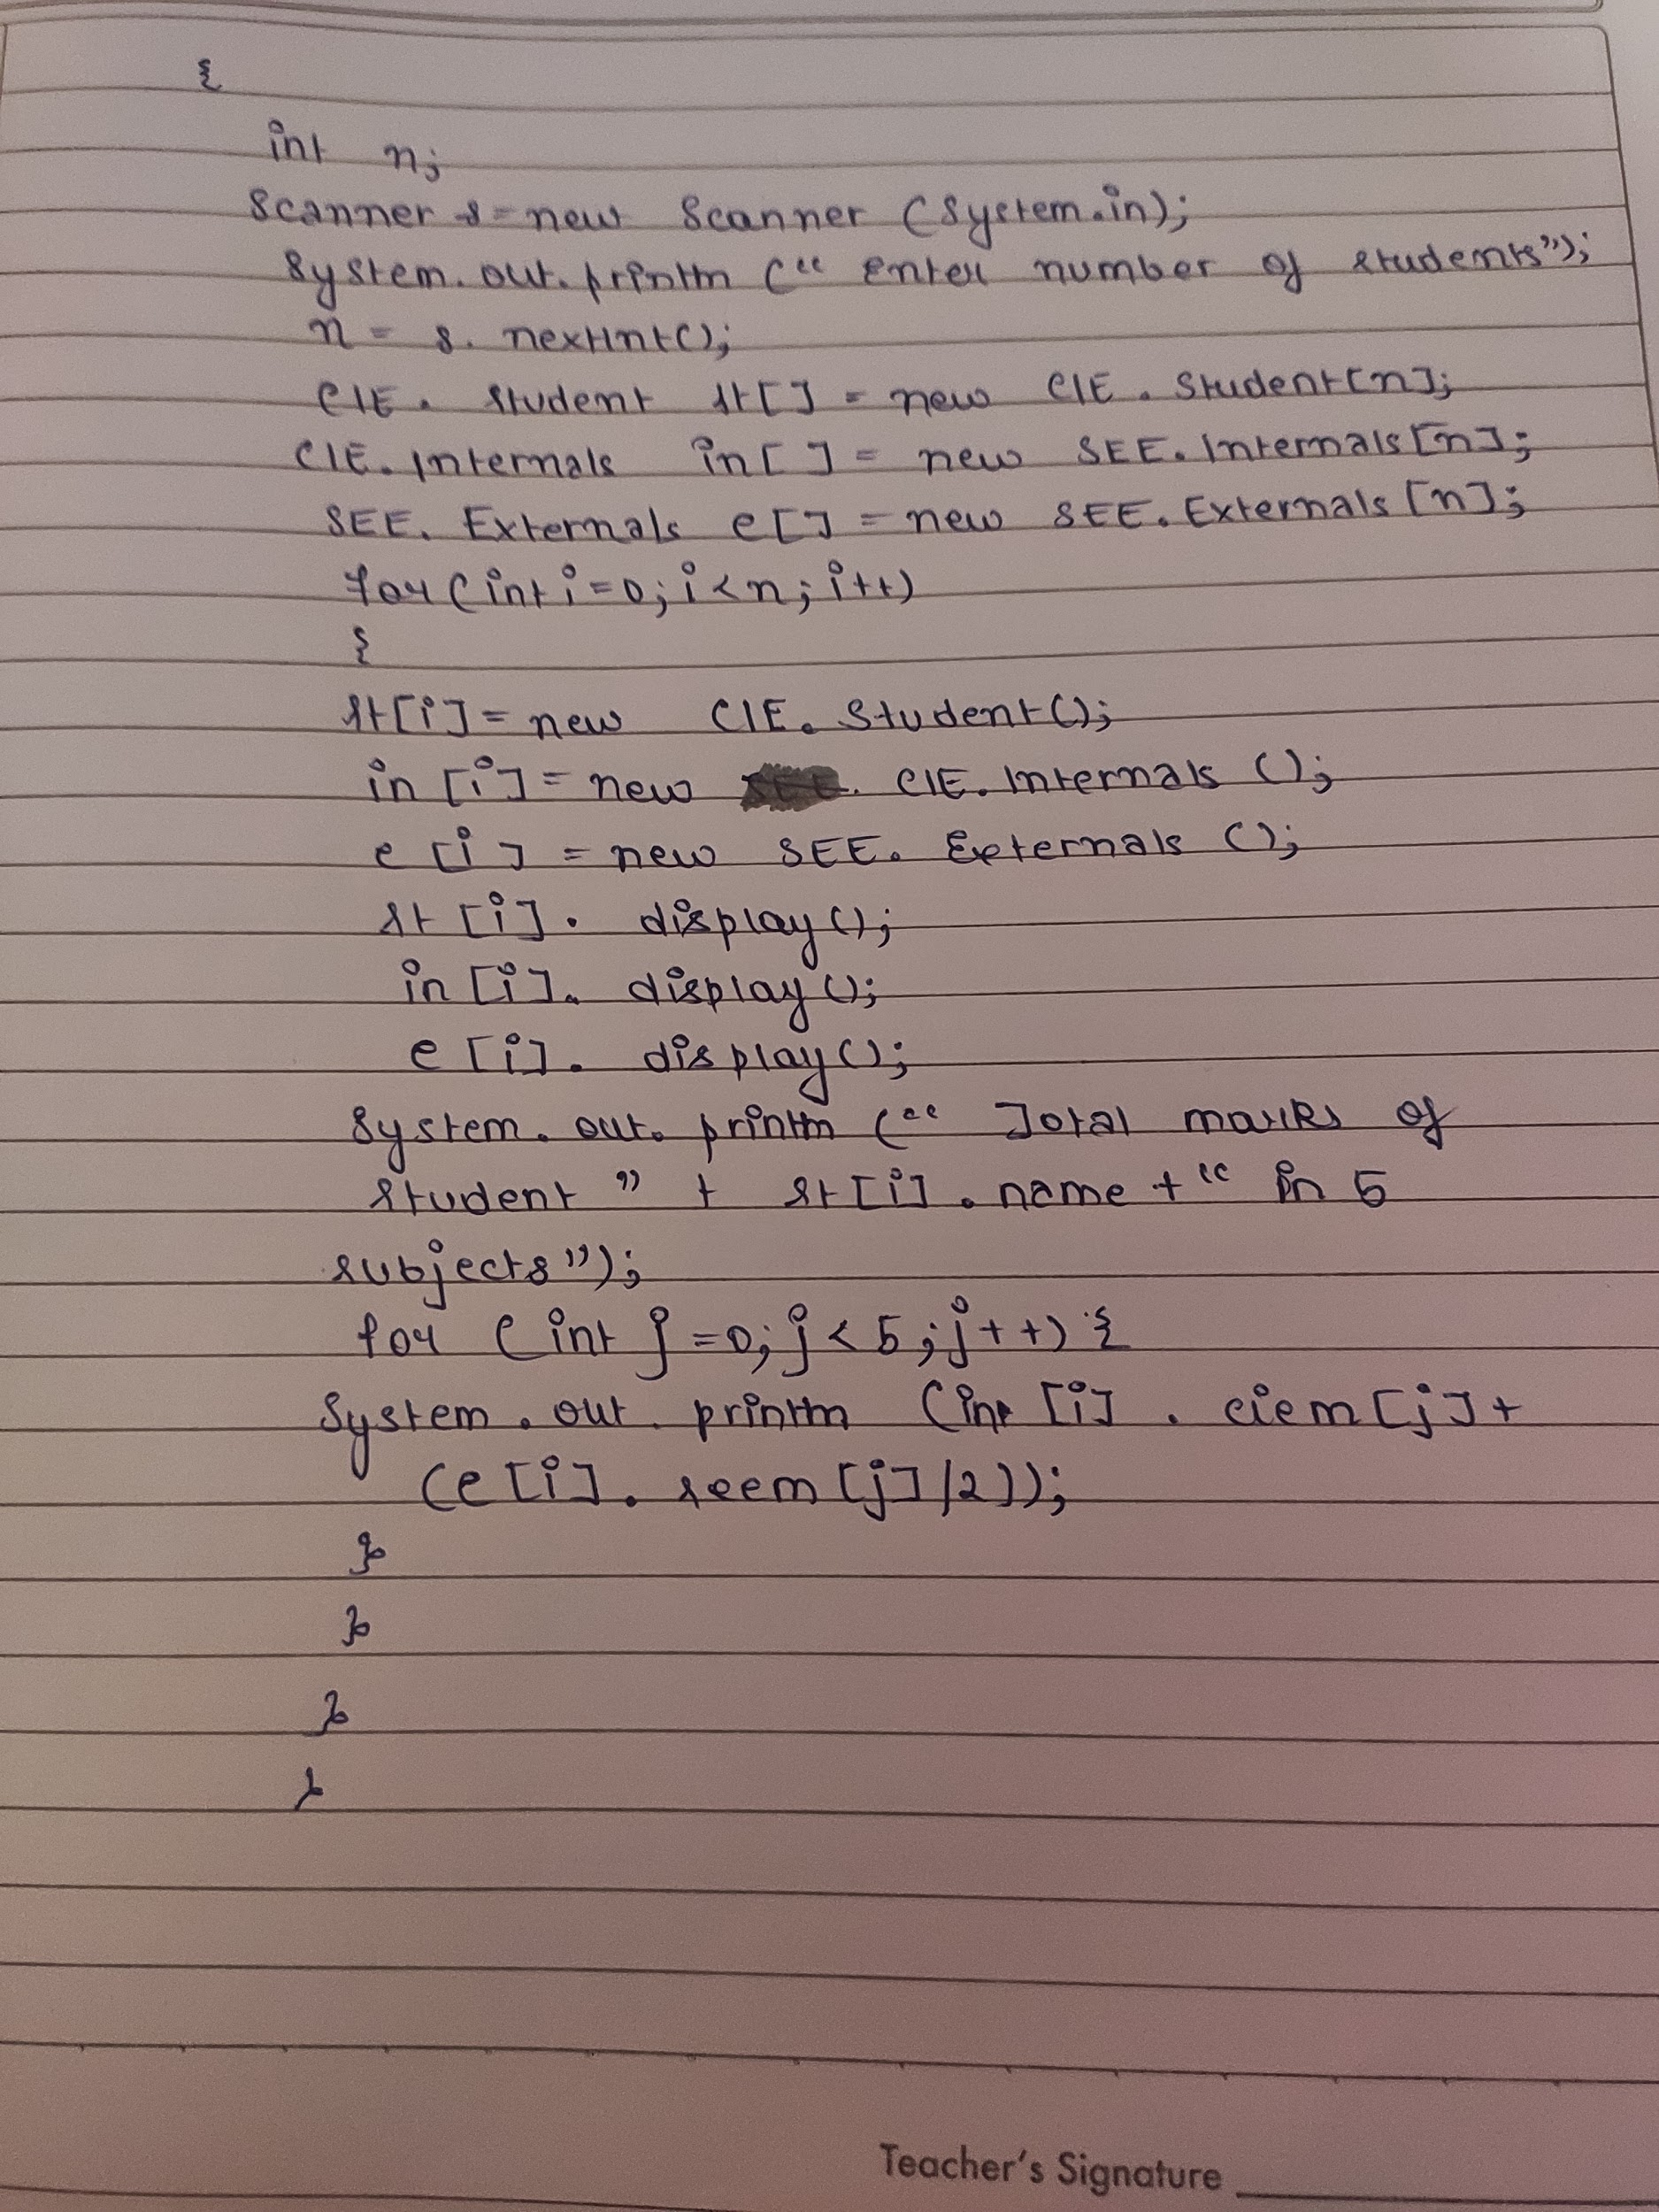 {
int n;
Scanner s = new Scanner (System.in);
System.out.println (" Enter number of students");
n = s. nextInt();
CIE. Student st[] = new CIE. Student[n];
CIE. Internals in[ ] = new SEE. Internals[n];
SEE. Externals e[] = new SEE. Externals [n];
for (int i=0; i<n; i++)
{
st[i] = new CIE. Student();
in [i] = new CIE. Internals ();
e [i] = new SEE. Externals ();
st [i]. display();
in [i]. display();
e [i]. display();
System. out. println (" Total marks of
student " + st[i]. name + " in 5
subjects");
for (int j=0; j<5; j++) {
System. out. println (in [i] . ciem [j] +
(e [i]. seem [j]/2));
}
}
}
}
Teacher's Signature